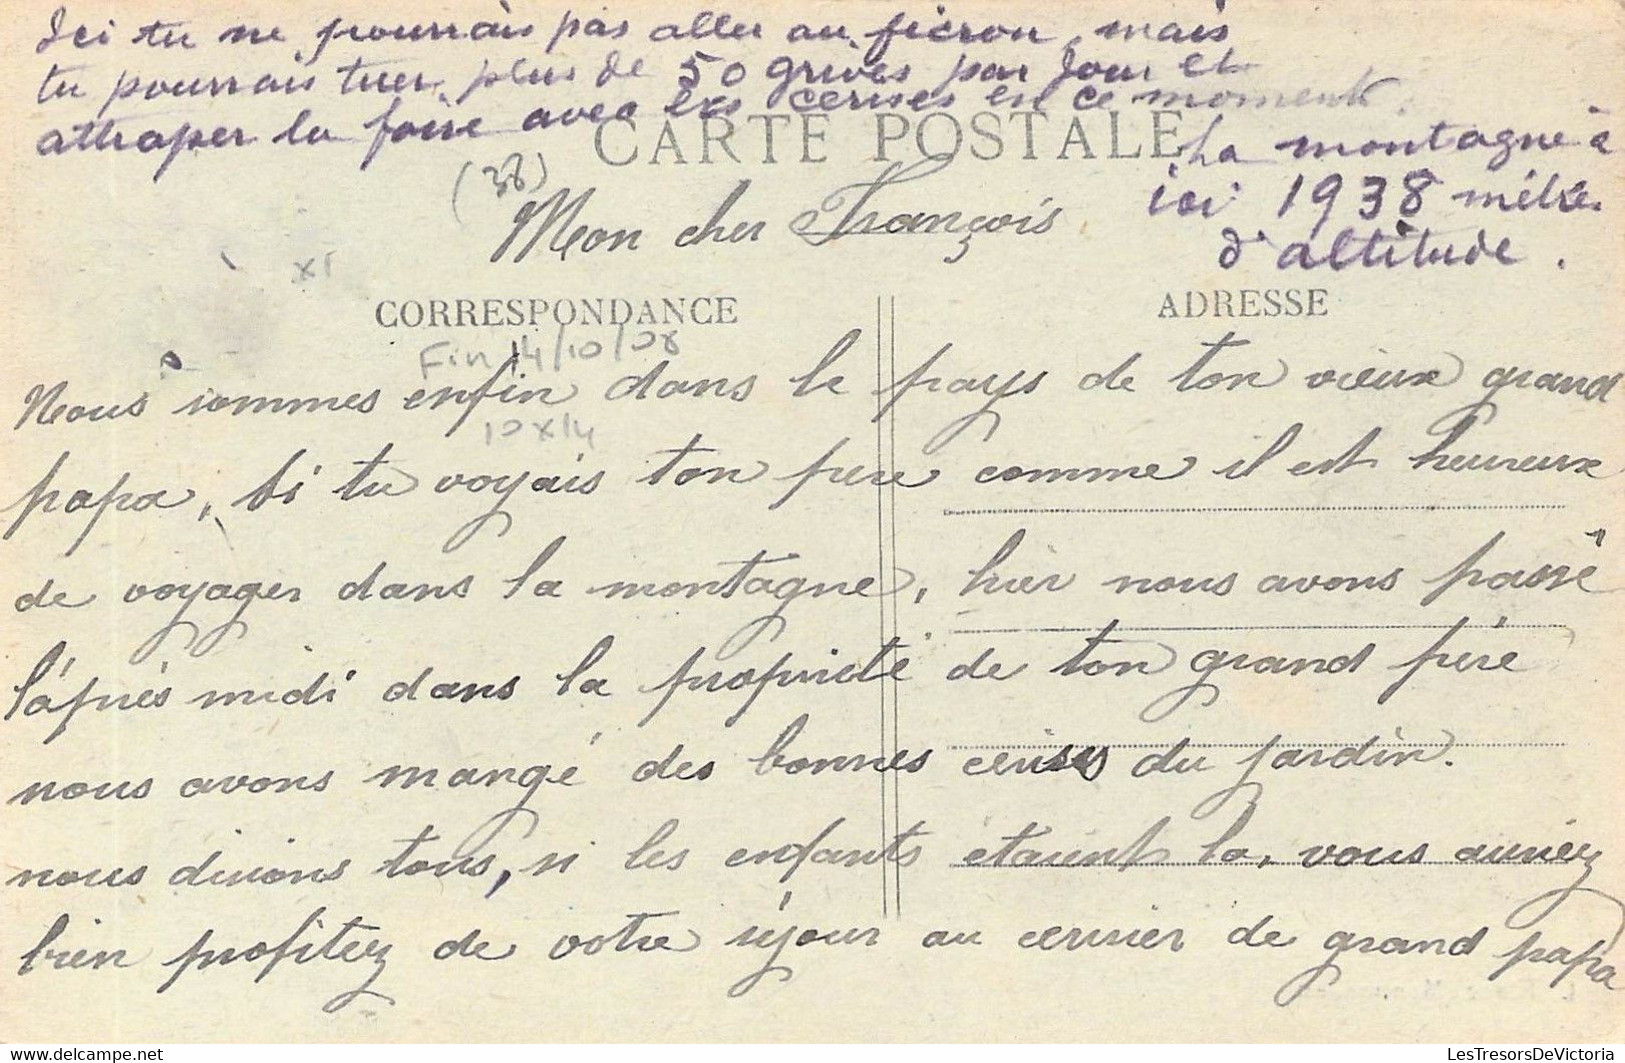 Ici tu ne pourrais pas aller au ficron, mais
tu pourrais tuer plus de 50 grives par Jour et
attraper la foire avec les cerises en ce moment.
CARTE POSTALE
La montagne à
ici 1938 mètres
d'altitude.
(38)
Mon cher François
x1
CORRESPONDANCE
ADRESSE
Fin 14/10/08
10x14
Nous sommes enfin dans le pays de ton vieux grand
papa, si tu voyais ton père comme il est heureux
de voyager dans la montagne, hier nous avons passé
l'après midi dans la propriété de ton grand père
nous avons mangé des bonnes cerises du jardin.
nous disions tous, si les enfants étaient la, vous auriez
bien profitez de votre séjour au cerisier de grand papa
LesTresorsDeVictoria
ebay.com